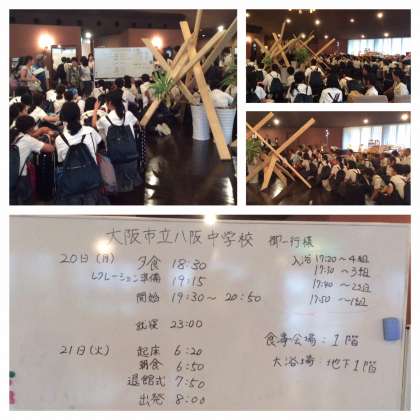 大阪市立八阪中学校 御一行様
20日(月) 夕食 18:30
レクレーション準備 19:15
開始 19:30〜 20:50
就寝 23:00
21日(火) 起床 6:20
朝食 6:50
退館式 7:50
出発 8:00
入浴 17:20〜4組
17:30 〜3組
17:40 〜2組
17:50 〜1組
食事会場:1階
大浴場:地下1階